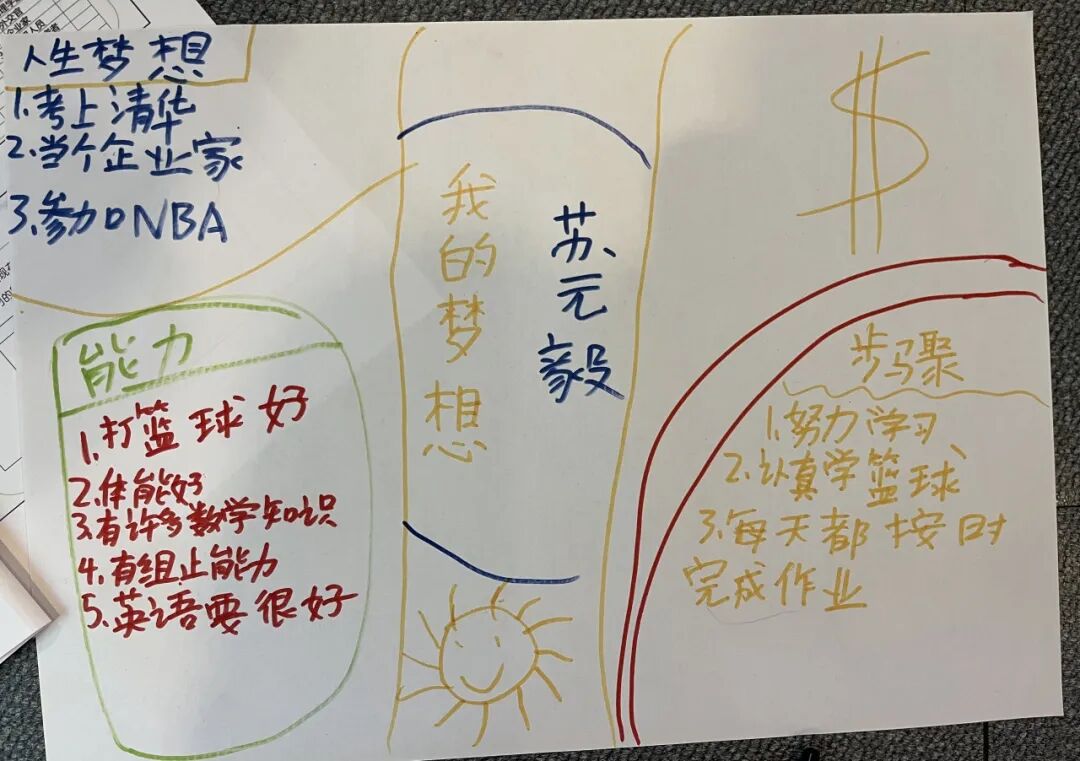 人生梦想
1.考上清华
2.当个企业家
3.参加NBA
能力
1.打篮球好
2.体能好
3.有许多数学知识
4.有组止能力
5.英语要很好
我的梦想
苏元毅
$
步骤
1.努力学习
2.认真学篮球
3.每天都按时
完成作业